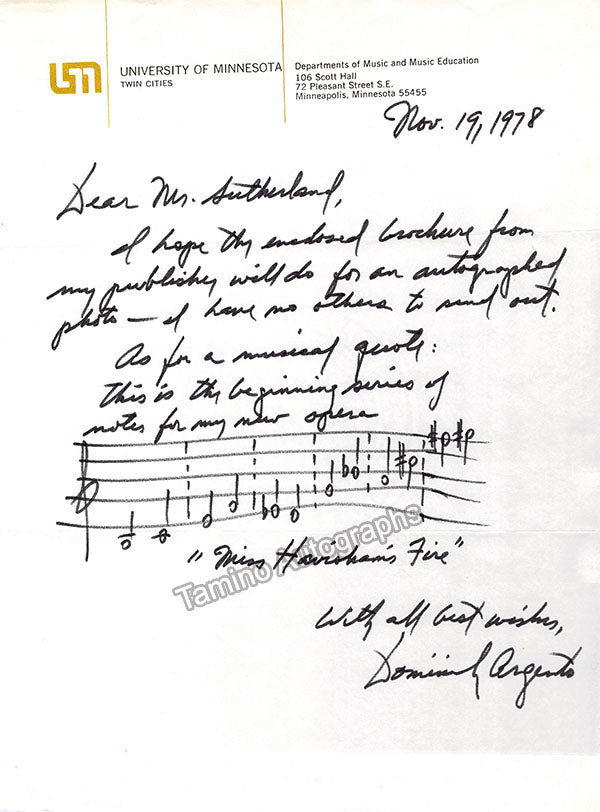 UNIVERSITY OF MINNESOTA
TWIN CITIES
Departments of Music and Music Education
106 Scott Hall
72 Pleasant Street S.E.
Minneapolis, Minnesota 55455
Nov. 19, 1978
Dear Mr. Sutherland,
I hope the enclosed brochure from
my publisher will do for an autographed
photo — I have no others to send out.
As for a musical quote:
this is the beginning series of
notes for my new opera
"Miss Havisham's Fire"
Tamino Autographs
With all best wishes,
Dominick Argento